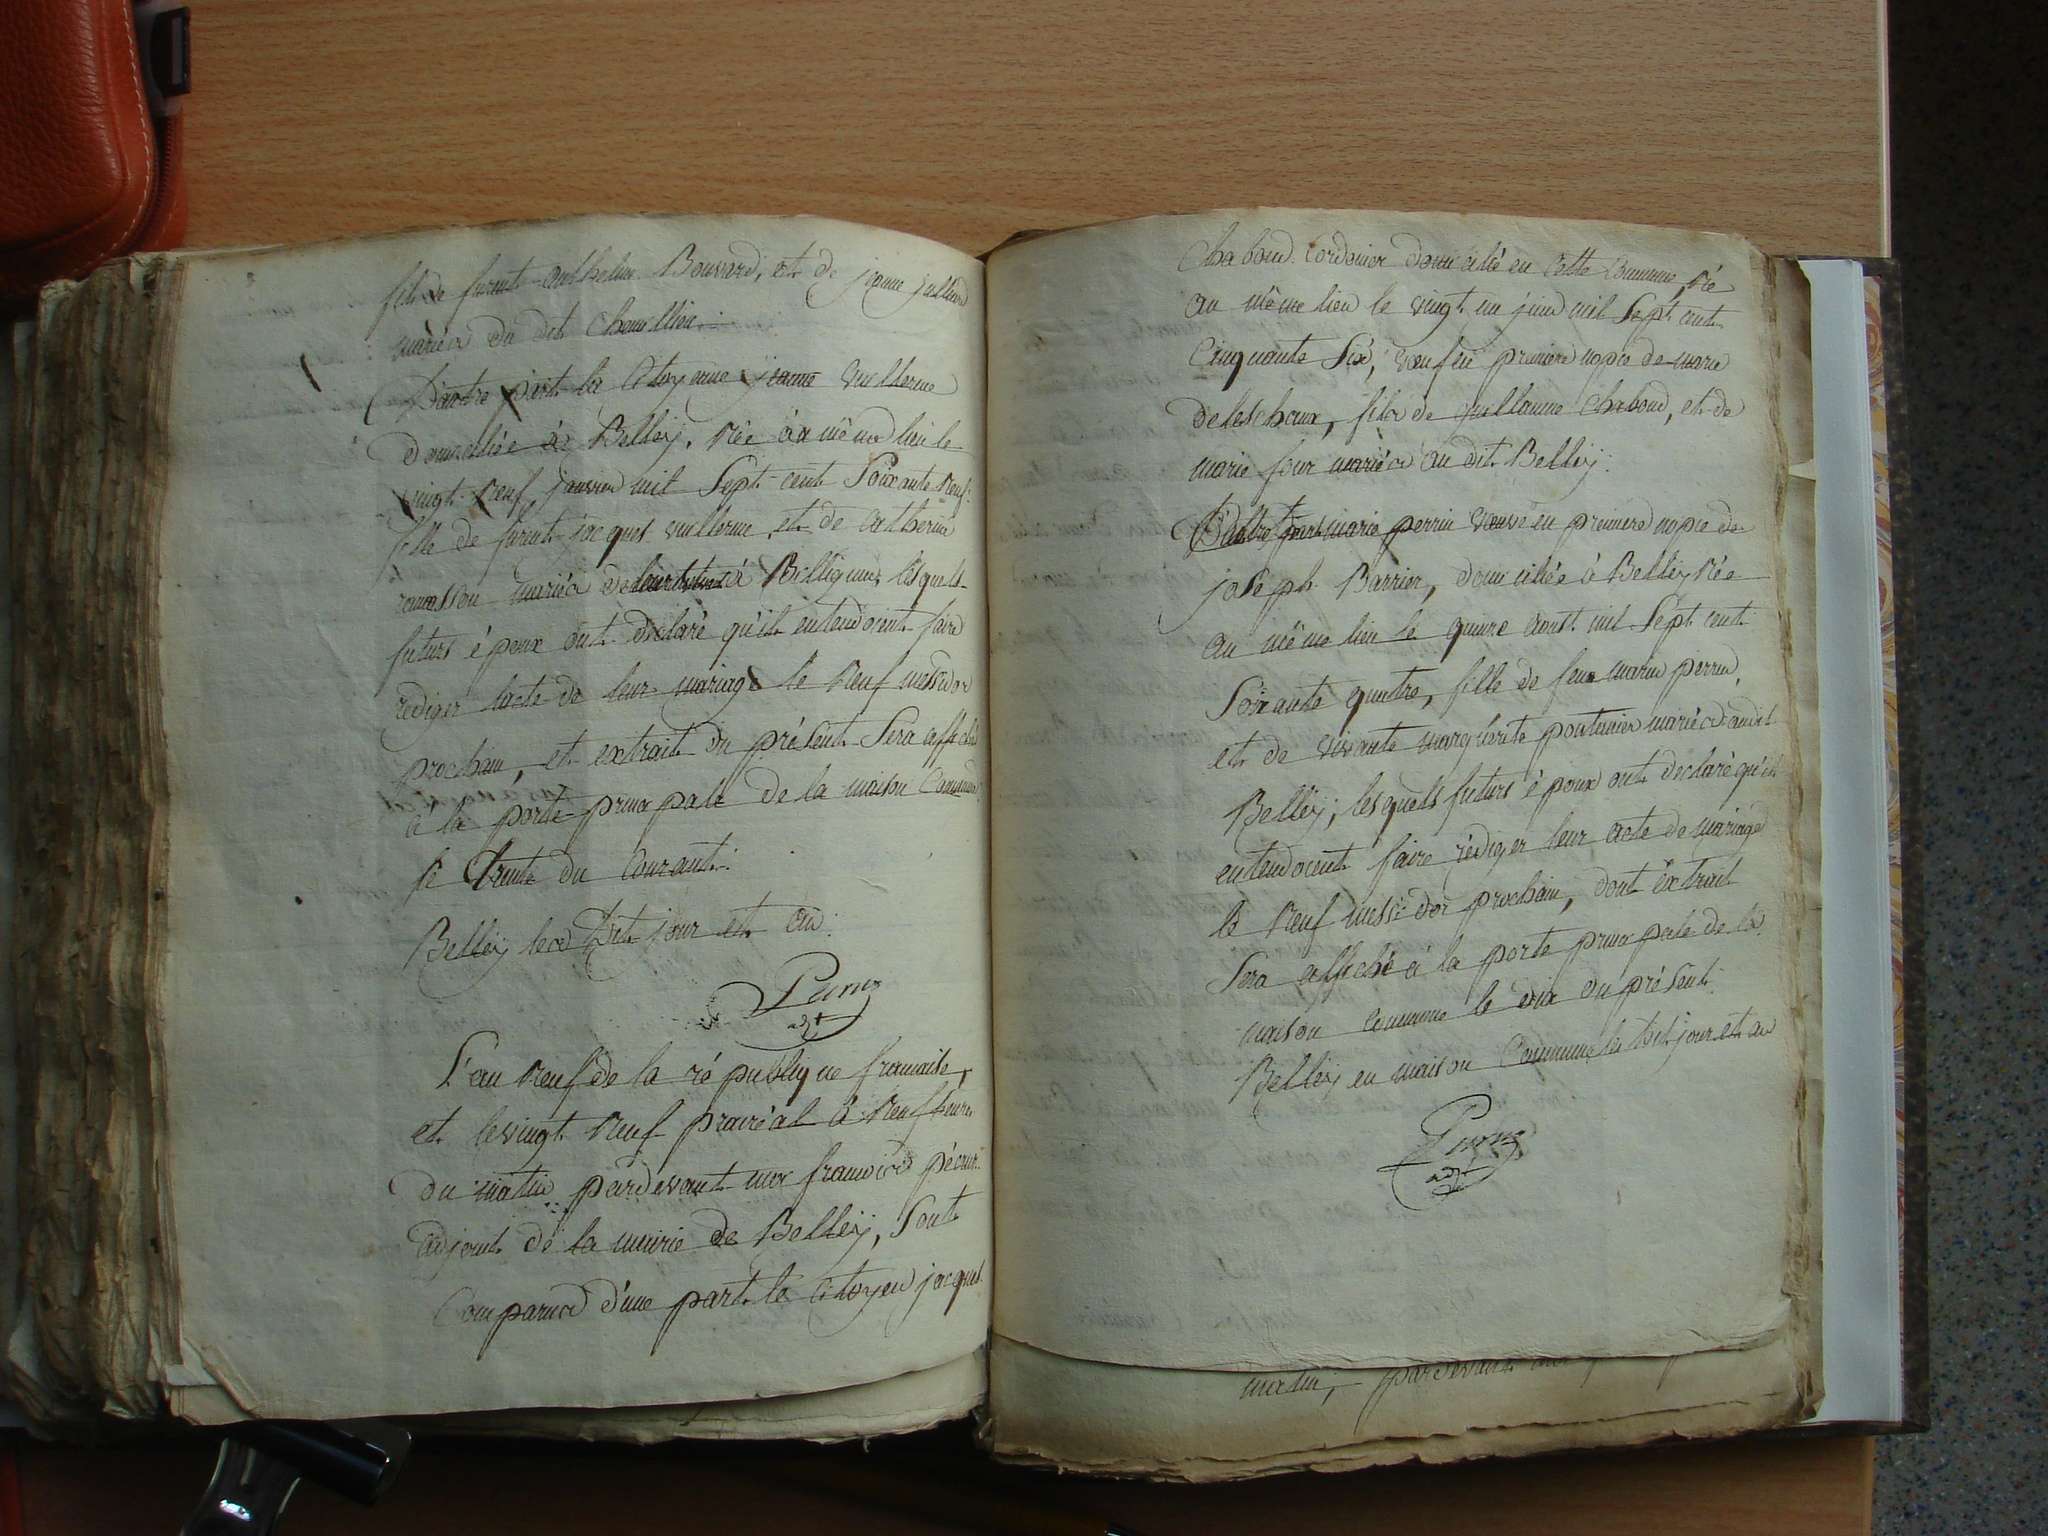 fils de furent anthelme Bouvard, et de jeanne julland
mariés du dit Chemillieu.
D'autre part la Citoyenne jeanne vuillerme
domiciliée à Belley, Née au même lieu le
vingt Neuf janvier mil Sept cent Soixante Neuf.
fille de furent jacques vuillerme et de catherine
ramasson mariés à Billignin, lesquels
futurs époux ont déclaré qu'ils entendoient faire
rediger l'acte de leur mariage le Neuf messidor
prochain, et extrait du présent Sera affiché
à la porte principale de la maison Commune
le trente du Courant.
Belley lesd Dit jour et an.
adjt
L'an Neuf de la république francaise,
et le vingt Neuf prairéal à Neuf heures
du matin pardevant moi francois pécur
adjoint de la mairie de Belley, Sont
Comparus d'une part le Citoyen jacques
Chaboud cordonier domicilié en Cette Commune, Né
au même lieu le vingt un juin mil Sept cent
Cinquante Six, veuf en premiere nopce de marie
deleschaux, fils de guillaume Chaboud, et de
marie four mariés au dit Belley.
D'autre part marie perrin veuve en premiere nopce de
joseph Barrier, domiciliée à Belley Née
au même lieu le quinze aoust mil Sept cent
Soixante quatre, fille de feu marin perrin,
et de vivante marguerite pontanier mariés audit
Belley, lesquels futurs époux ont declaré qu'ils
entendoient faire rédiger leur acte de mariage
le Neuf messidor prochain, dont extrait
Sera affiché à la porte principale de la
maison commune le dix du présent.
Belley en maison Commune les Dit jour et an
adjt
matin, pardevant